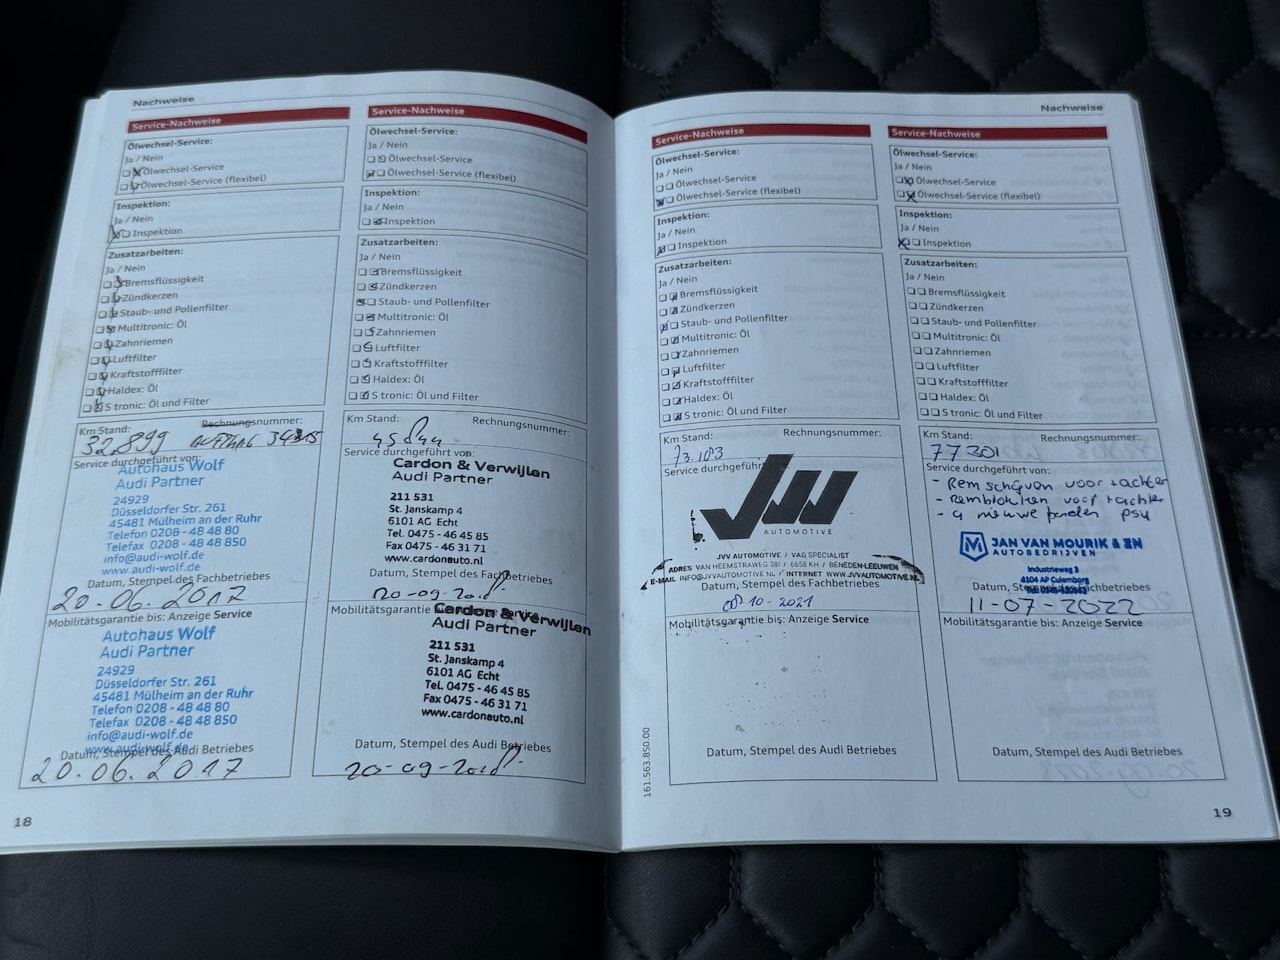 Nachweise
Service-Nachweise
Ölwechsel-Service:
Ja / Nein
Ölwechsel-Service
Ölwechsel-Service (flexibel)
Inspektion:
Ja / Nein
Inspektion
Zusatzarbeiten:
Ja / Nein
Bremsflüssigkeit
Zündkerzen
Staub- und Pollenfilter
Multitronic: Öl
Zahnriemen
Luftfilter
Kraftstofffilter
Haldex: Öl
S tronic: Öl und Filter
Km Stand: Rechnungsnummer:
32.899
Service durchgeführt von:
Autohaus Wolf
Audi Partner
24929
Düsseldorfer Str. 261
45481 Mülheim an der Ruhr
Telefon 0208 - 48 48 80
Telefax 0208 - 48 48 850
info@audi-wolf.de
www.audi-wolf.de
Datum, Stempel des Fachbetriebes
20.06.2017
Mobilitätsgarantie bis: Anzeige Service
Autohaus Wolf
Audi Partner
24929
Düsseldorfer Str. 261
45481 Mülheim an der Ruhr
Telefon 0208 - 48 48 80
Telefax 0208 - 48 48 850
info@audi-wolf.de
www.audi-wolf.de
Datum, Stempel des Audi Betriebes
20.06.2017
18
Service-Nachweise
Ölwechsel-Service:
Ja / Nein
Ölwechsel-Service
Ölwechsel-Service (flexibel)
Inspektion:
Ja / Nein
Inspektion
Zusatzarbeiten:
Ja / Nein
Bremsflüssigkeit
Zündkerzen
Staub- und Pollenfilter
Multitronic: Öl
Zahnriemen
Luftfilter
Kraftstofffilter
Haldex: Öl
S tronic: Öl und Filter
Km Stand: Rechnungsnummer:
Service durchgeführt von:
Cardon & Verwijlen
Audi Partner
211 531
St. Janskamp 4
6101 AG Echt
Tel. 0475 - 46 45 85
Fax 0475 - 46 31 71
www.cardonauto.nl
Datum, Stempel des Fachbetriebes
20-09-2018
Mobilitätsgarantie
Cardon & Verwijlen
Audi Partner
211 531
St. Janskamp 4
6101 AG Echt
Tel. 0475 - 46 45 85
Fax 0475 - 46 31 71
www.cardonauto.nl
Datum, Stempel des Audi Betriebes
20-09-2018
Nachweise
Service-Nachweise
Ölwechsel-Service:
Ja / Nein
Ölwechsel-Service
Ölwechsel-Service (flexibel)
Inspektion:
Ja / Nein
Inspektion
Zusatzarbeiten:
Ja / Nein
Bremsflüssigkeit
Zündkerzen
Staub- und Pollenfilter
Multitronic: Öl
Zahnriemen
Luftfilter
Kraftstofffilter
Haldex: Öl
S tronic: Öl und Filter
Km Stand: Rechnungsnummer:
73.183
Service durchgeführt
JVV
AUTOMOTIVE
JVV AUTOMOTIVE / VAG SPECIALIST
ADRES VAN HEEMSTRAWEG 381 / 6658 KH / BENEDEN-LEEUWEN
E-MAIL INFO@JVVAUTOMOTIVE.NL / INTERNET WWW.JVVAUTOMOTIVE.NL
Datum, Stempel des Fachbetriebes
08-10-2021
Mobilitätsgarantie bis: Anzeige Service
Datum, Stempel des Audi Betriebes
161.563.850.00
Service-Nachweise
Ölwechsel-Service:
Ja / Nein
Ölwechsel-Service
Ölwechsel-Service (flexibel)
Inspektion:
Ja / Nein
Inspektion
Zusatzarbeiten:
Ja / Nein
Bremsflüssigkeit
Zündkerzen
Staub- und Pollenfilter
Multitronic: Öl
Zahnriemen
Luftfilter
Kraftstofffilter
Haldex: Öl
S tronic: Öl und Filter
Km Stand: Rechnungsnummer:
77301
Service durchgeführt von:
- Remschijven voor + achter
- Remblokken voor + achter
- 4 nieuwe banden
JAN VAN MOURIK & ZN
AUTOBEDRIJVEN
Industrieweg 3
4104 AP Culemborg
Datum, Stempel des Fachbetriebes
11-07-2022
Mobilitätsgarantie bis: Anzeige Service
Datum, Stempel des Audi Betriebes
19